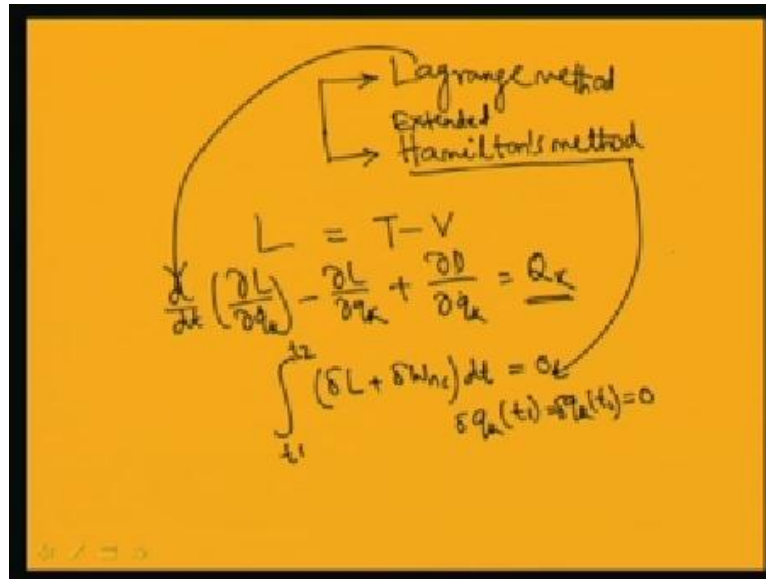 Lagrange method
Extended
Hamilton's method
L = T-V
d/dt (∂L/∂q̇k) - ∂L/∂qk + ∂D/∂q̇k = Qk
∫t1t2 (δL + δWnc) dt = 0
δqk(t1) = δqk(t2) = 0